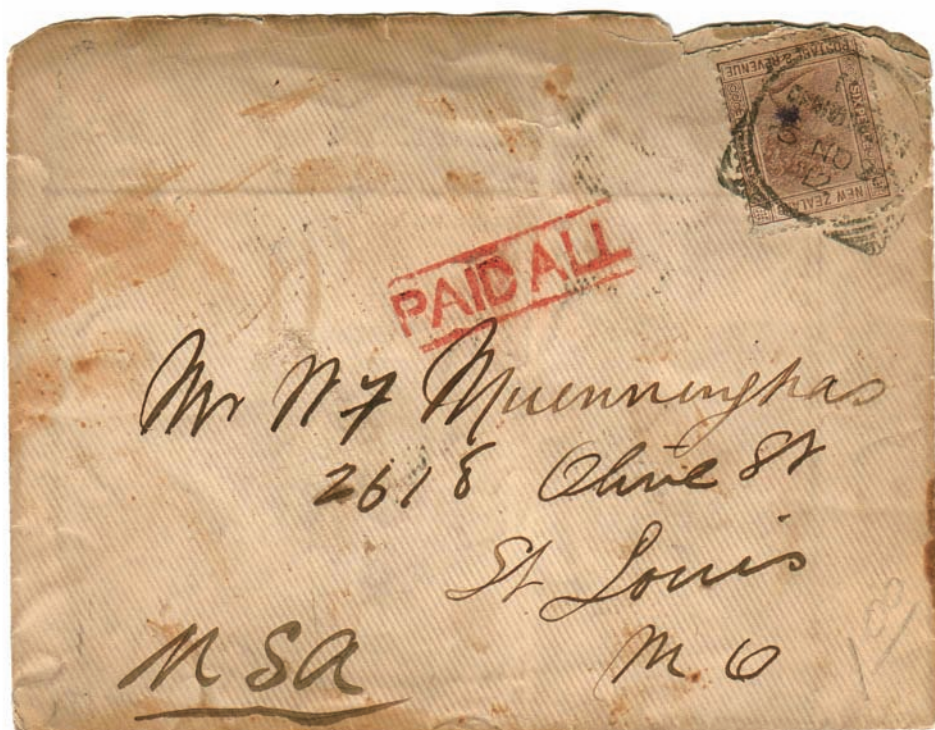 POSTAGE & REVENUE
SIXPENCE
NEW ZEALAND
PAID ALL
Mr W F Muenninghas
2618 Olive St
St Louis
M O
USA